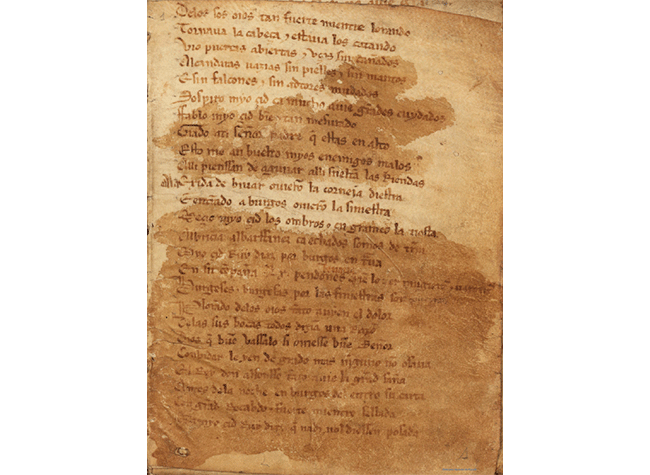 Delos sos oios tan fuerte mientre lorando
Tornaua la cabeça ⁊ estaua los catando
Vio puertas abiertas ⁊ vços sin cañados
Alcandaras uazias sin pielles ⁊ sin mantos
E sin falcones ⁊ sin adtores mudados
Sospiro myo çid ca mucho auie grãdes cuydados
Fablo myo çid bie⁊ tan mesurado
Grado ati señor padre q̃ estas en alto
Esto me an buelto myos enemigos malos
Alli pienssan de aguiiar alli sueltã las Riendas
Ala Exida de biuar ouierõ la corneia diestra
Entrãdo a burgos ouierõ la siniestra
Meçio myo çid los ombros ⁊ en grameo la tiesta
albarffanez ca echados somos de trã
Myo çid Ruy diaz por burgos en trã ua
En su cõpaña Lx pendones
Burgeses ⁊ burgesas por las finiestras son
Plorãdo delos oios tãto auyen el dolor
Delas sus bocas todos dizian una Razo
Dios q̃ buẽ vassalo si ouiesse buẽ Señor
Conbidar le yen de grado mas ninguno nõ osaua
El Rey don alfonsso tãto auie la grãd saña
Antes dela noche en burgos del entro su carta
Con grãd Recabdo ⁊ fuerte mientre sellada
myo çid Ruy diaz q̃ nadi nol diessen posada